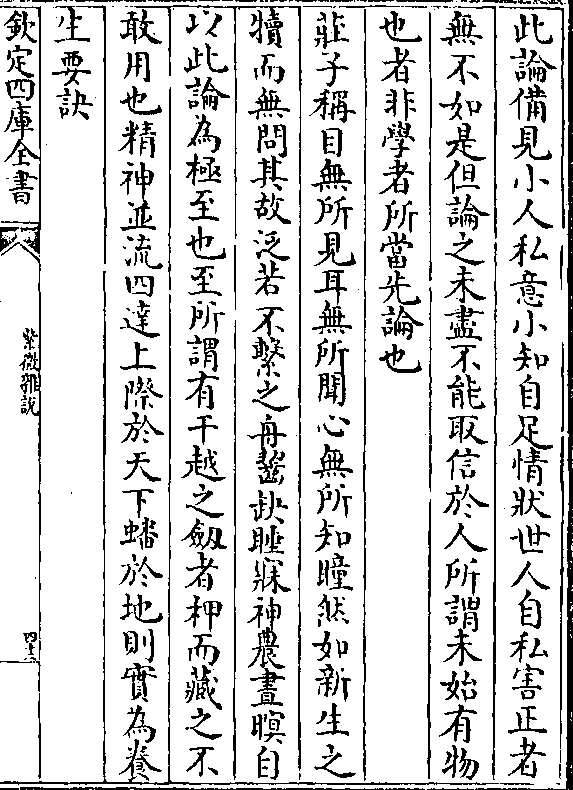 此論備見小人私意小知自足情狀世人自私害正者
無不如是但論之未盡不能取信於人所謂未始有物
也者非學者所當先論也
莊子稱目無所見耳無所聞心無所知瞳然如新生之
犢而無問其故泛若不繫之舟齧缺睡寐神農晝瞑自
以此論為極至也至所謂有干越之劔者柙而藏之不
敢用也精神並流四達上際於天下蟠於地則實為養
生要訣
欽定四庫全書
紫微雜説